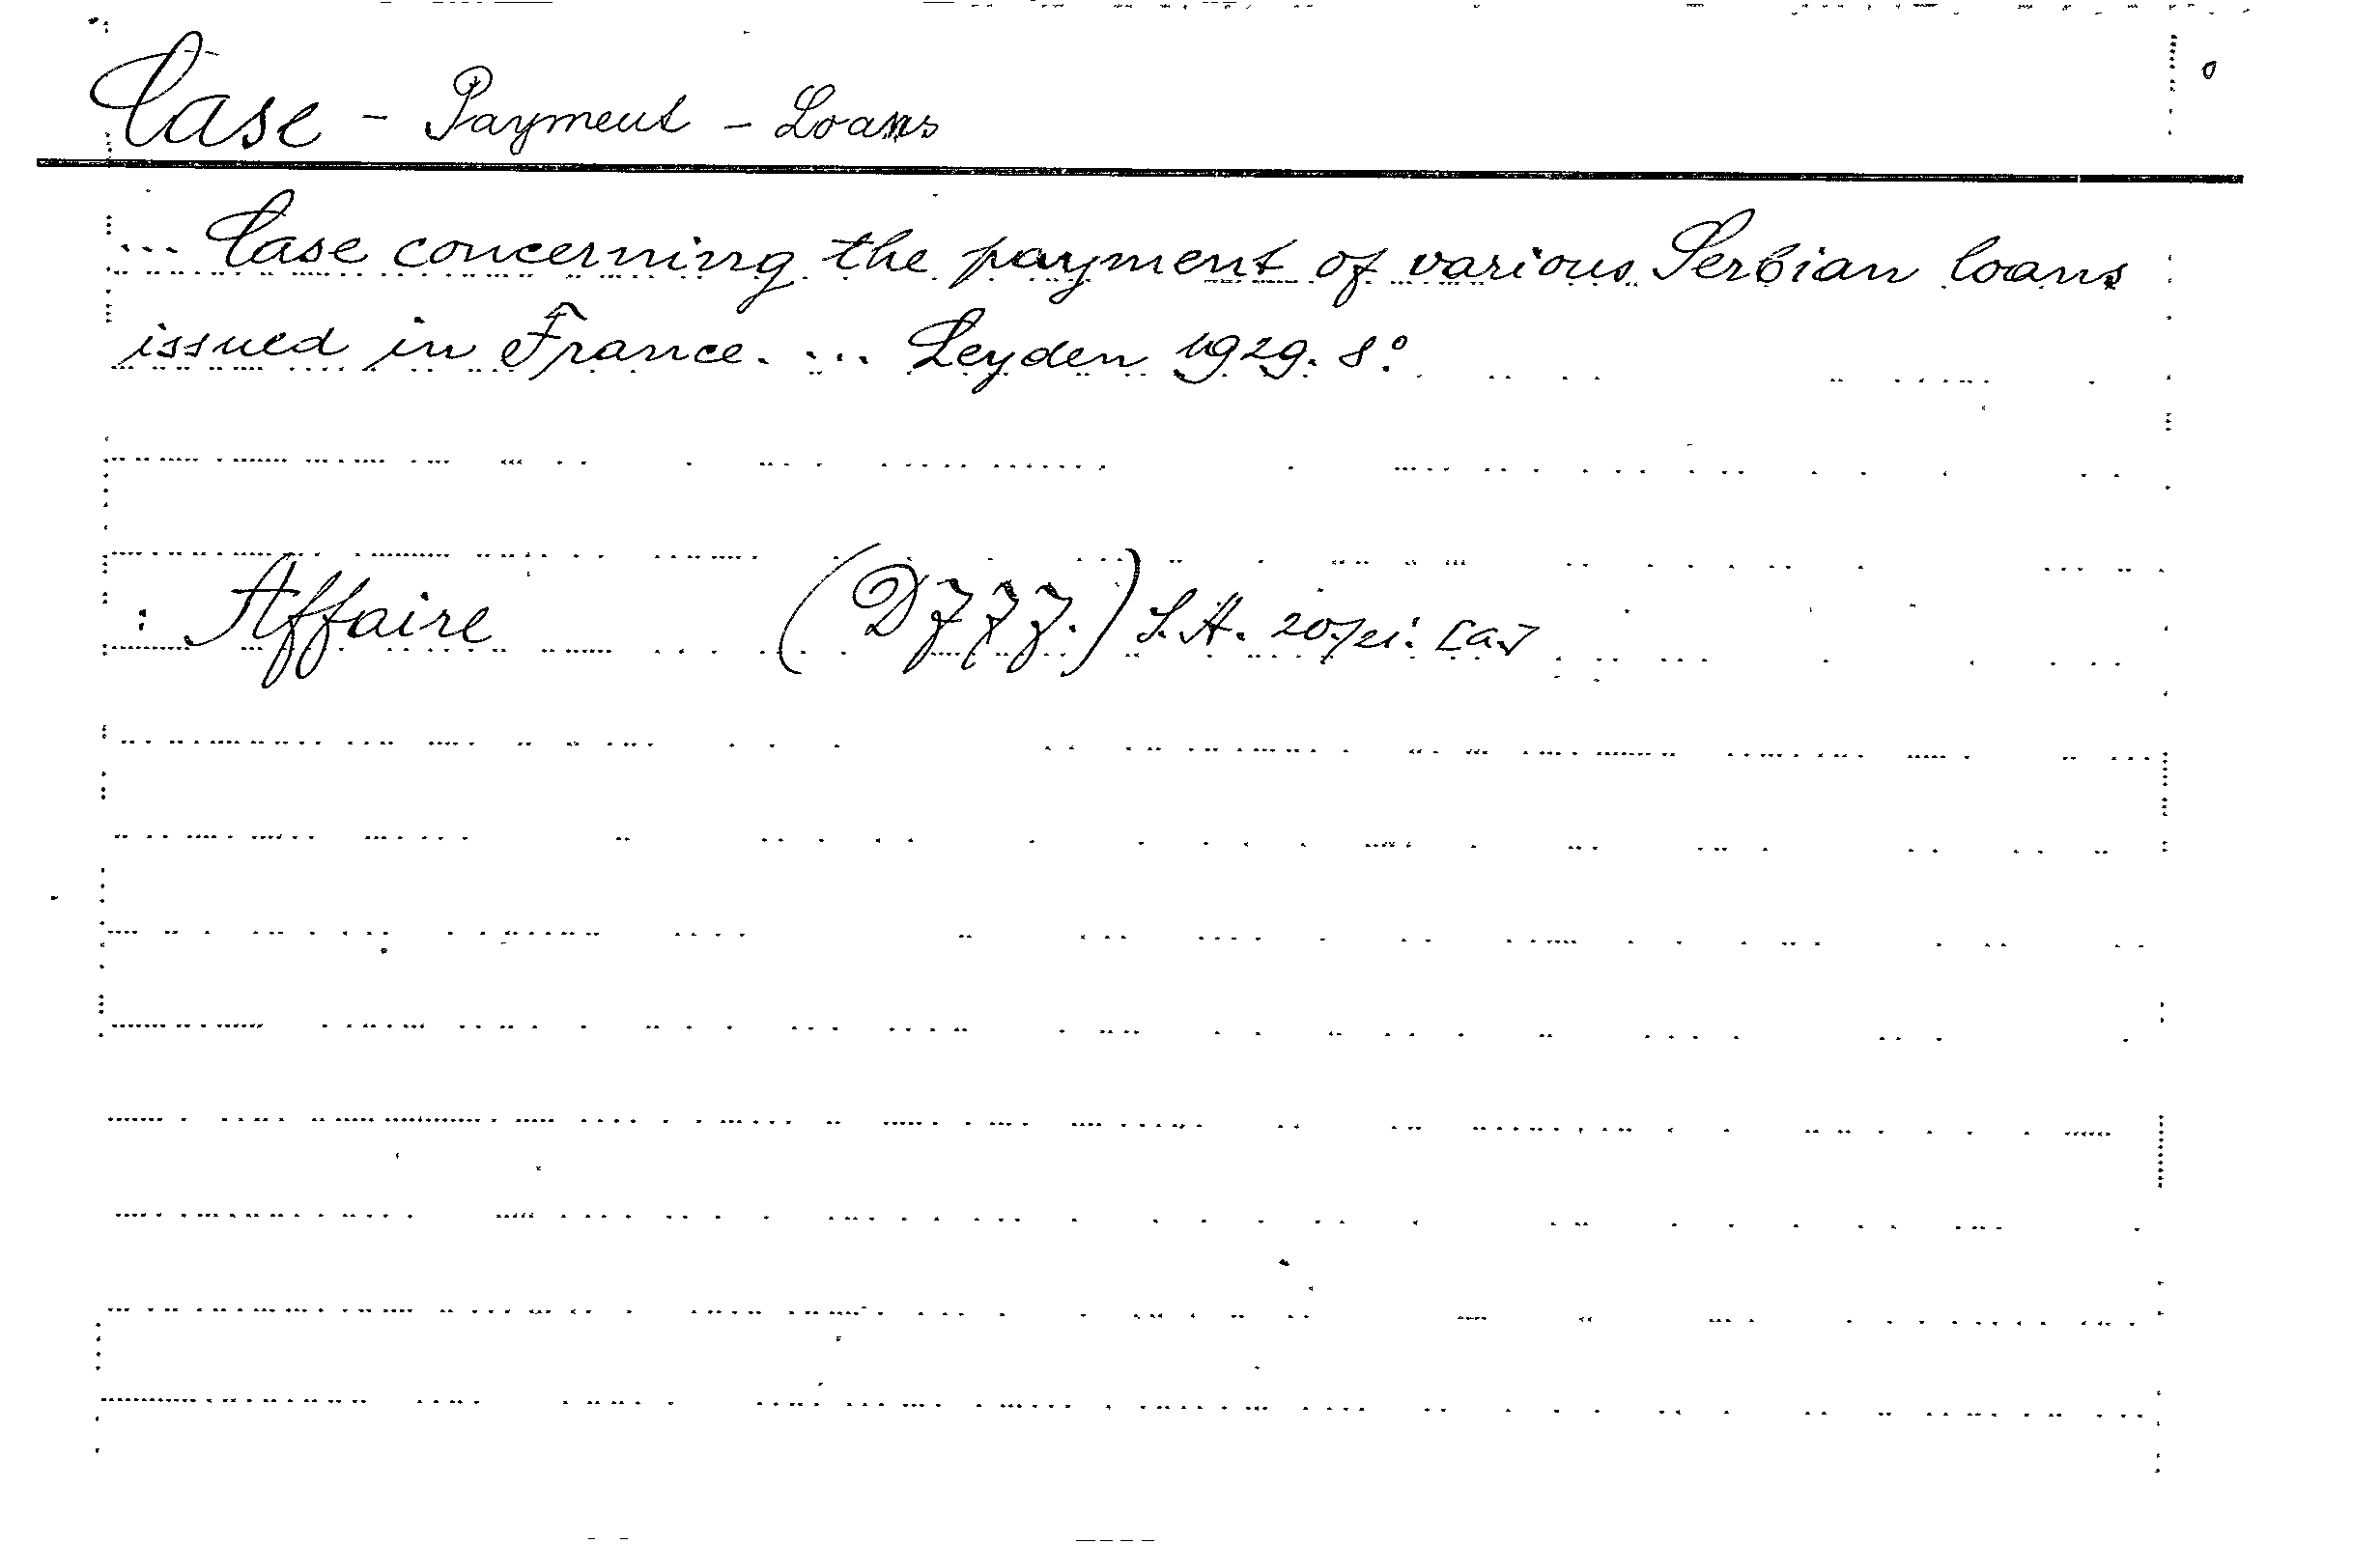 Case - Payment - Loans
... Case concerning the payment of various Serbian loans
issued in France. ... Leyden 1929. 8°.
: Affaire S.A. 20./21. [a.]